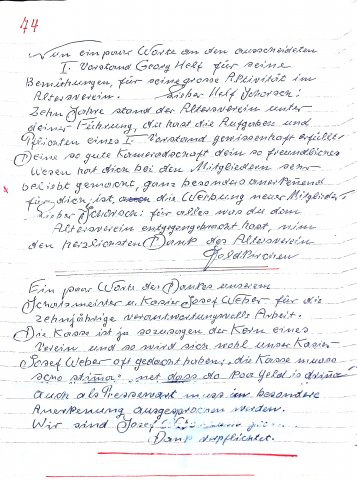 44
Nun ein paar Worte an den ausscheidenten
I. Vorstand Georg Helf für seine
Bemühungen, für seine grosse Aktivität im
Altersverein. Lieber Helf Schorsch!
Zehn Jahre stand der Altersverein unter
deiner Führung, du hast die Aufgaben und
Pflichten eines I. Vorstand gewissenhaft erfüllt
Deine so gute Kameradschaft dein so freundliches
Wesen hat dich bei den Mitgliedern sehr
beliebt gemacht, ganz besonders anerkenend
für dich ist, die Werbung neuer Mitglieder.
Lieber Schorsch für alles was du dem
Altersverein entgegengebracht hast, nim
den herzlichsten Dank des Altersverein
Holdkirchen
Ein paar Worte des Dankes unserem
Schatzmeister u. Kasier Josef Weber für die
zehnjährige verantwortungsvolle Arbeit.
Die Kasse ist ja sozusagen der Kern eines
Verein und so wird sich wohl unser Kasier
Josef Weber oft gedacht haben, die Kasse muass
scho stima, net dass do koa Geld is drina
auch als Pressewart muss im besondere
Anerkenung ausgesprochen werden.
Wir sind Josef
Dank verpflichtet.